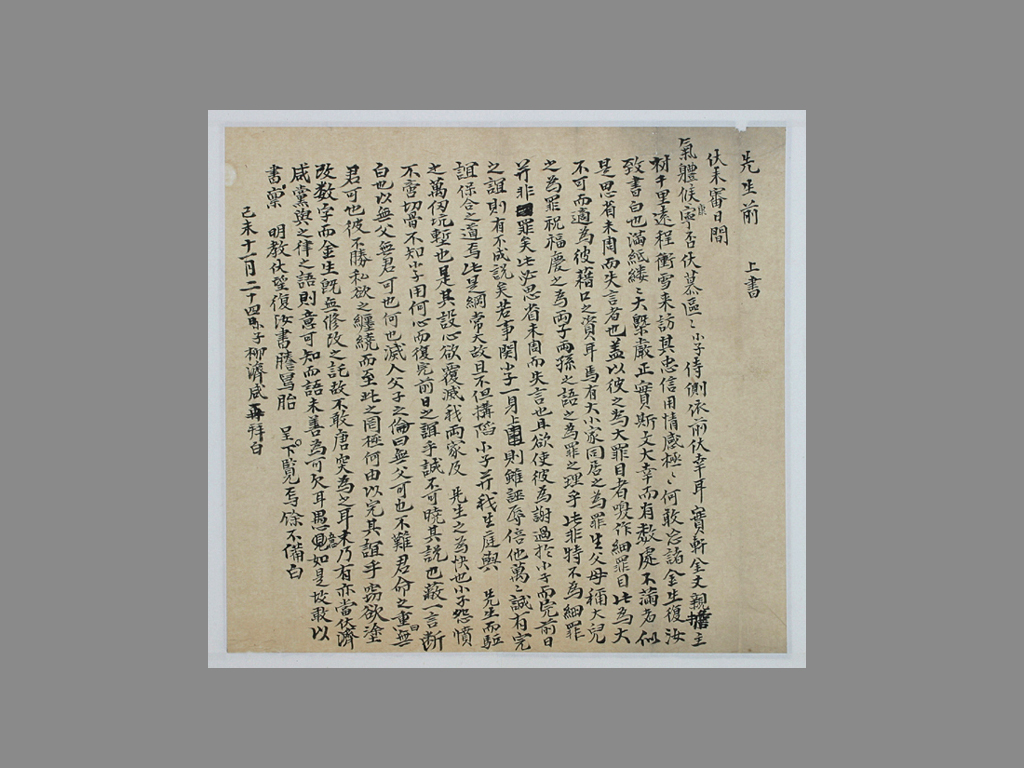 先生前 上書
伏未審日間
氣體候寧否伏慕區〻小子侍側依前伏幸耳 實軒金丈 親携主
材千里遠程衝雪來訪其忠信用情感極〻何敢忘諸金生復汝
致書白也滿紙縷〻大槩嚴正實斯文大幸而有數處不滿者似
是思省未周而失言者也盖以彼之為大罪目者喚作細罪目此為大
不可而適為彼藉口之資耳焉有大小家同居之為罪生父母稱大兒
之為罪祝福慶之為兩子兩孫之語之為罪之理乎此非特不為細罪
并非罪矣此必思省未周而失言也且欲使彼為謝過於小子而完前日
之誼則有不成説矣若事関小子一身上事則雖誣辱倍他萬〻誠有完
誼保合之道焉此是綱常大故且不但搆陷小子并我生庭與 先生而駈
之萬仞坑塹也是其設心欲覆滅我兩家及 先生之為快也小子怨憤
不啻切骨不知小子用何心而復完前日之誼乎誠不可曉其説也蔽一言断
白也以無父無君可也何也滅人父子之倫曰無父可也不難君命之重曰無
君可也彼不勝私欲之纏繞而至此之罔極何由以完其誼乎弟欲塗
改数字而金生旣無修改之託故不敢唐突為之耳未乃有亦當伏濟
咸黨與之律之語則意可知而語未善為可欠耳愚見如是故敢以
書禀 明教伏望復汝書謄冩貽 呈下覧焉餘不備白
己未十一月二十四日小子柳濟咸再拜白